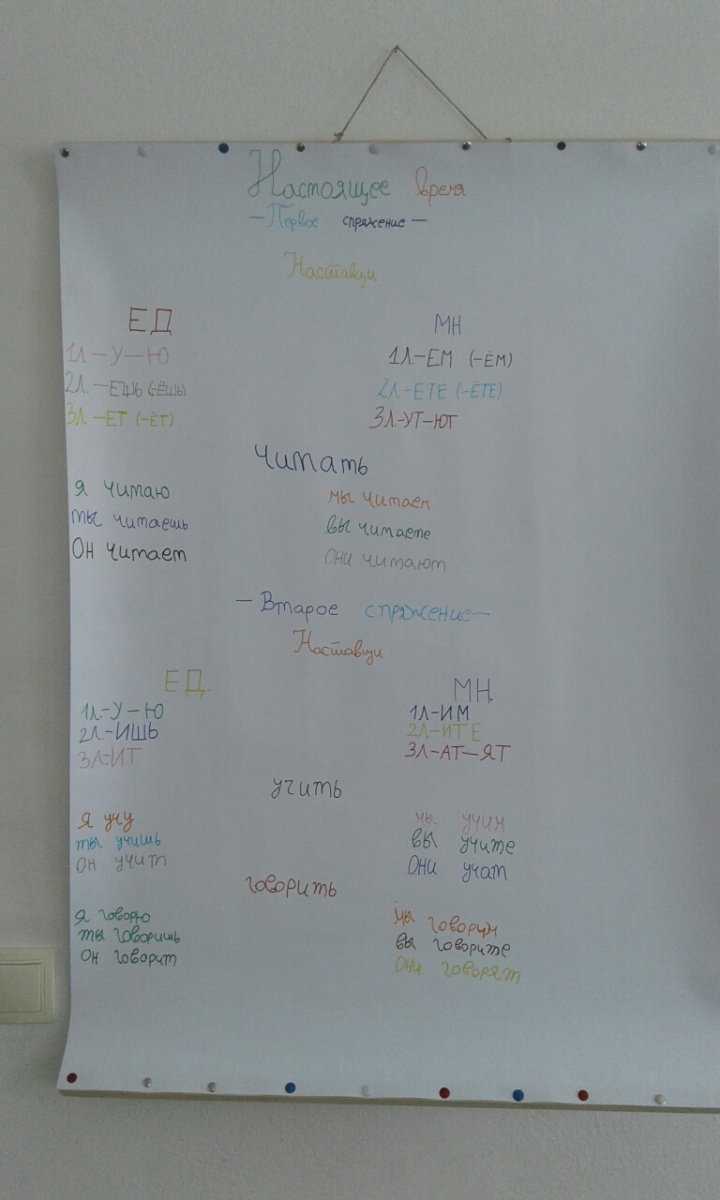 Настоящее время
—Первое спряжение—
Наставци
ЕД
1Л—У—Ю
2Л.—ЕШЬ (-ЁШЬ)
3Л.—ЕТ (-ЁТ)
МН
1Л—ЕМ (-ЁМ)
2Л-ЕТЕ (-ЁТЕ)
3Л-УТ-ЮТ
читать
я читаю
ты читаешь
Он читает
мы читаем
вы читаете
они читают
—Второе спряжение—
Наставци
ЕД.
1Л-У-Ю
2Л.-ИШЬ
3Л-ИТ
МН.
1Л-ИМ
2Л-ИТЕ
3Л-АТ-ЯТ
учить
я учу
ты учишь
он учит
мы учим
вы учите
они учат
говорить
я говорю
ты говоришь
он говорит
мы говорим
вы говорите
они говорят